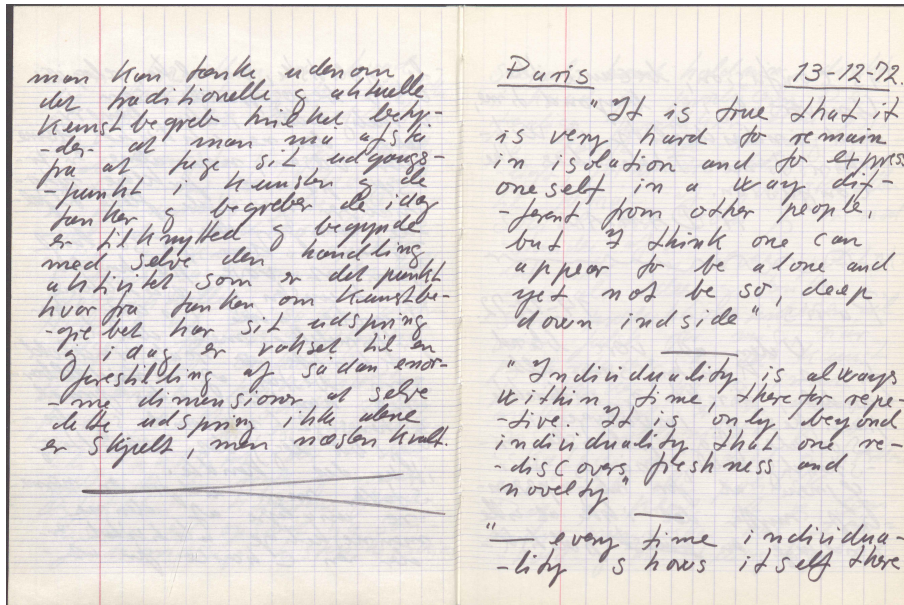 man kan tænke udenom
det traditionelle og aktuelle
kunstbegreb hvilket bety-
-der at man må afstå
fra at tage sit udgangs-
-punkt i kunsten og de
tanker og begreber de idag
er tilknytted og begynde
med selve den handling
aktivitet som er det punkt
hvor fra tanken om kunstbe-
-grebet har sit udspring
og i dag er vokset til en
forestilling af sådan enor-
-me dimensioner at selve
dette udspring ikke alene
er skjult, men næsten kvalt.
Paris 13-12-72.
"It is true that it
is very hard to remain
in isolation and to express
oneself in a way dif-
-ferent from other people,
but I think one can
appear to be alone and
yet not be so, deep
down indside"
"Individuality is always
within time, therefor repe-
-tive. It is only beyond
individuality that one re-
-discovers freshness and
novelty"
"— every time individua-
-lity shows itself there